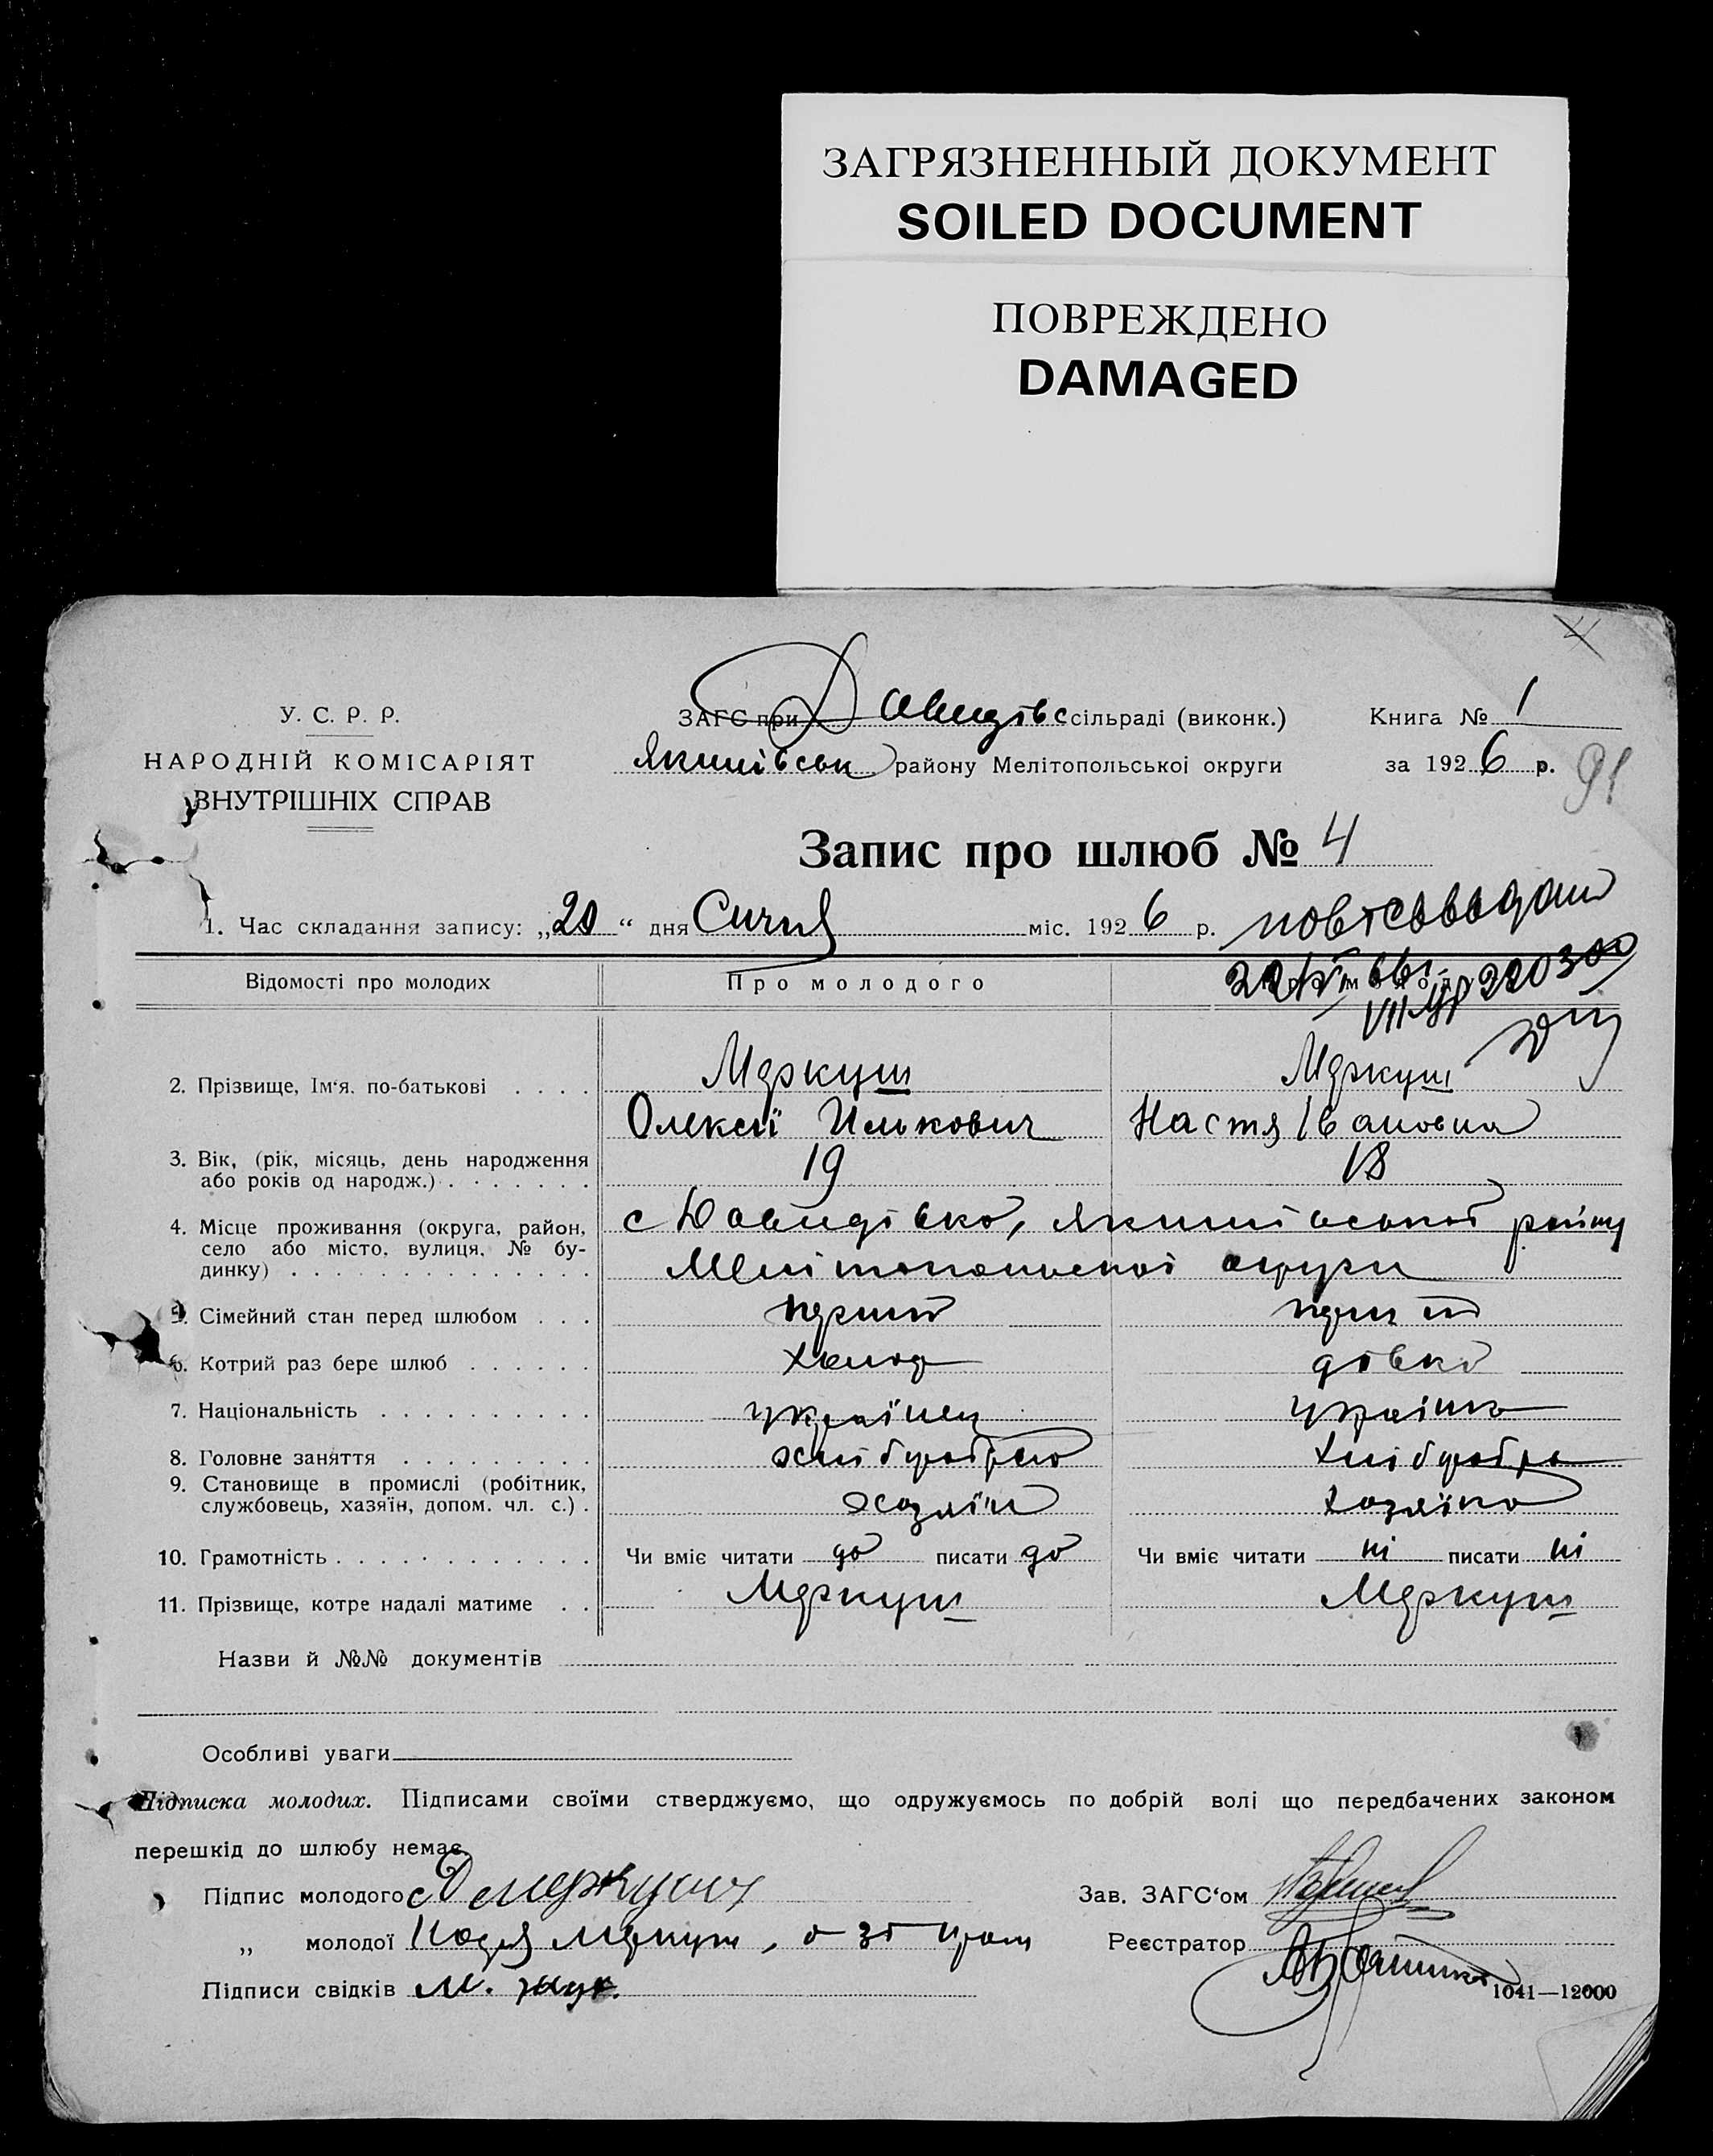 ЗАГРЯЗНЕННЫЙ ДОКУМЕНТ
SOILED DOCUMENT
ПОВРЕЖДЕНО
DAMAGED
4
У. С. Р. Р.
НАРОДНІЙ КОМІСАРІЯТ
ВНУТРІШНІХ СПРАВ
ЗАГС при Давидівс сільраді (виконк.)
Якимівськ району Мелітопольськоі округи
Книга № 1
за 1926 р.
91
Запис про шлюб № 4
1. Час складання запису: „20“ дня Січня міс. 1926 р.
Відомості про молодих Про молодого
220300
2. Прізвище, Ім‘я. по-батькові . . . . Меркуш Меркуш
Олексій Илькович Настя Івановна
3. Вік, (рік, місяць, день народження
або років од народж.) . . . . . . . 19 18
4. Місце проживання (округа, район,
село або місто, вулиця, № бу-
динку) . . . . . . . . . . . . . . .
с Давидівка, Якимівськоі району
Мелітопольскоі округи
5. Сімейний стан перед шлюбом . . . перший перший
6. Котрий раз бере шлюб . . . . . . холост дівка
7. Національність . . . . . . . . . . украінец украінка
8. Головне заняття . . . . . . . . . хліборобство хлібороб
9. Становище в промислі (робітник,
службовець, хазяїн, допом. чл. с.) . хазяїн хазяїка
10. Грамотність . . . . . . . . . . . . Чи вміє читати да писати да Чи вміє читати ні писати ні
11. Прізвище, котре надалі матиме . . Меркуш Меркуш
Назви й №№ документів
Особливі уваги
Підписка молодих. Підписами своїми стверджуємо, що одружуємось по добрій волі що передбачених законом
перешкід до шлюбу немає.
Підпис молодого Меркуш
Зав. ЗАГС‘ом
„ молодої Меркуш
Реєстратор
Підписи свідків
1041—12000